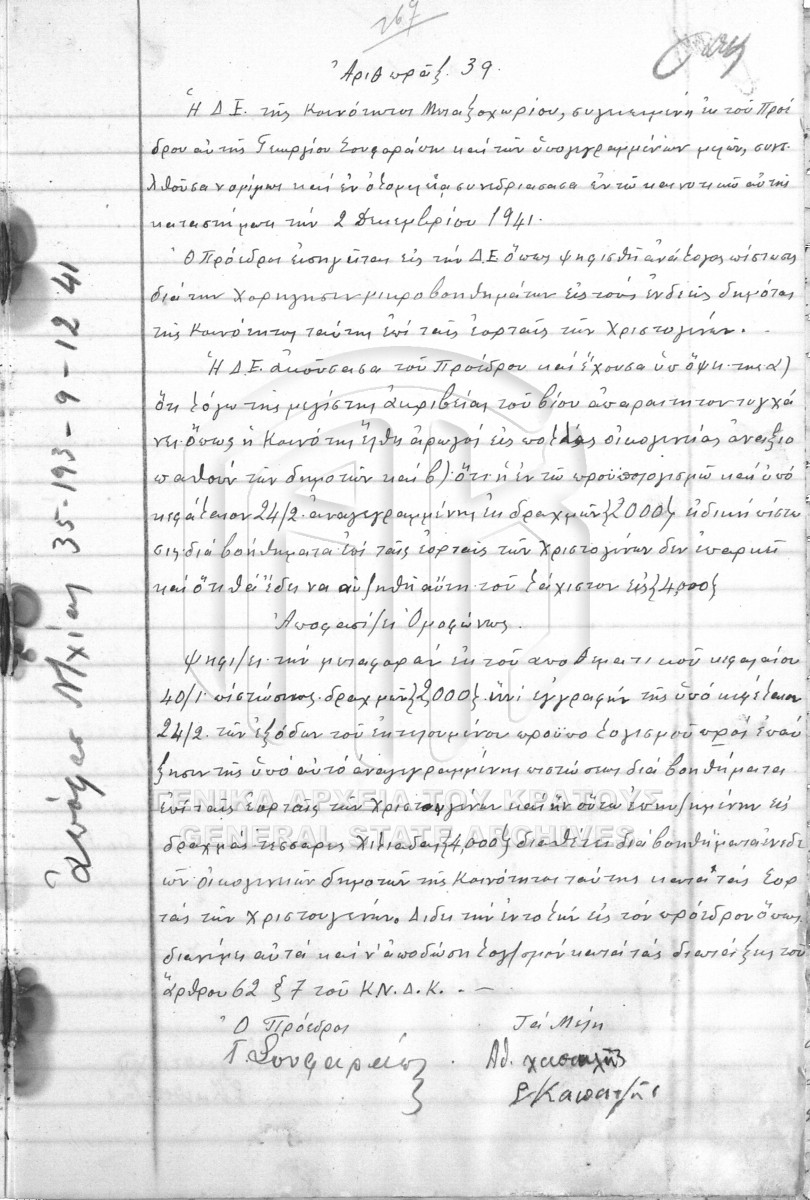 269
Ἀριθ πράξ. 39.
Ἡ Δ.Ε. τῆς Κοινότητος Μπαξοχωρίου, συγκειμένη ἐκ τοῦ Προέ
δρου αὐτῆς Γεωργίου Σουφαράπη καί τῶν ὑπογεγραμμένων μελῶν, συνε
λθοῦσα νομίμως καί ἐν συνεδριάσασα ἐν τῷ κοινοτικῷ αὐτῆς
καταστήματι τήν 2 Δεκεμβρίου 1941.
Ὁ Πρόεδρος εἰσηγεῖται εἰς τήν Δ.Ε ὅπως ψηφισθῇ ἀνάλογος πίστωσις
διά την χορήγησιν μικροβοηθημάτων εἰς τούς ἐνδεεῖς δημότας
τῆς Κοινότητος ταύτης ἐπί ταῖς ἑορταῖς τῶν Χριστουγένων.
Ἡ Δ.Ε. ἀκούσασα τοῦ Προέδρου καί ἔχουσα ὑπ' ὄψη της α)
ὅτι λόγω τῆς μεγίστης ἀκριβείας τοῦ βίου ἀπαραίτητον τυγχά
νει ὅπως ἡ Κοινότης ἔλθη ἀρωγός εἰς πολλάς οἰκογενείας ἀναξιο
παθούντων δημοτῶν καί β) ὅτι ἡ ἐν τῶ προϋπολογισμῶ καί ὑπό
κεφάλαιον 24/2 ἀναγεγραμμένη ἐκ δραχμῶν {2000} εἰδική πίστω
σις διά βοηθήματα ἐπί ταῖς ἑορταῖς τῶν Χριστουγένων δεν ἐπαρκεῖ
καί ὅτι θά ἔδει να αὐξηθῆ αὕτη τοῦ λάχιστον εἰς {4000}
Ἀποφασίζει Ὁμοφώνως.
Ψηφίζει τήν μεταφοράν ἐκ τοῦ αποθεματικοῦ κεφαλαίου
40/1 πιστώσεως δραχμῶν {2000} ἐγγραφήν τῆς ὑπό κεφάλαιον
24/2 τῶν ἐξόδων τοῦ ἐκτελουμένου προϋπολογισμοῦ πρός ἐπαύ
ξησιν τῆς ὑπό αὐτό ἀναγεγραμμένης πιστώσεως διά βοηθήματα
ἐπί ταῖς ἑορταῖς τῶν Χριστουγένων καί ἥν οὕτω ἐπηυξημένην εἰς
δραχμάς τέσσαρες χιλιάδας {4000} διαθέτει διά βοηθήματα ἐνδε
ῶν οἰκογενειῶν δημοτῶν τῆς Κοινότητος ταύτης κατά τάς Ἑορ
τάς τῶν Χριστουγένων. Δίδει τήν ἐντολήν εἰς τόν πρόεδρον ὅπως
διανείμη αὐτά καί ν' ἀποδώση λογ/σμόν κατά τάς διατάξεις τοῦ
ἄρθρου 62 § 7 τοῦ ΚΝ.Δ.Κ. . —
Ὁ Πρόεδρος
Τά Μέλη
Γ. Σουφαράπης
Αθ.
ἀπόφασ Νχίας 35-193-9-12 41
ΓΕΝΙΚΑ ΑΡΧΕΙΑ ΤΟΥ ΚΡΑΤΟΥΣ
GENERAL STATE ARCHIVES